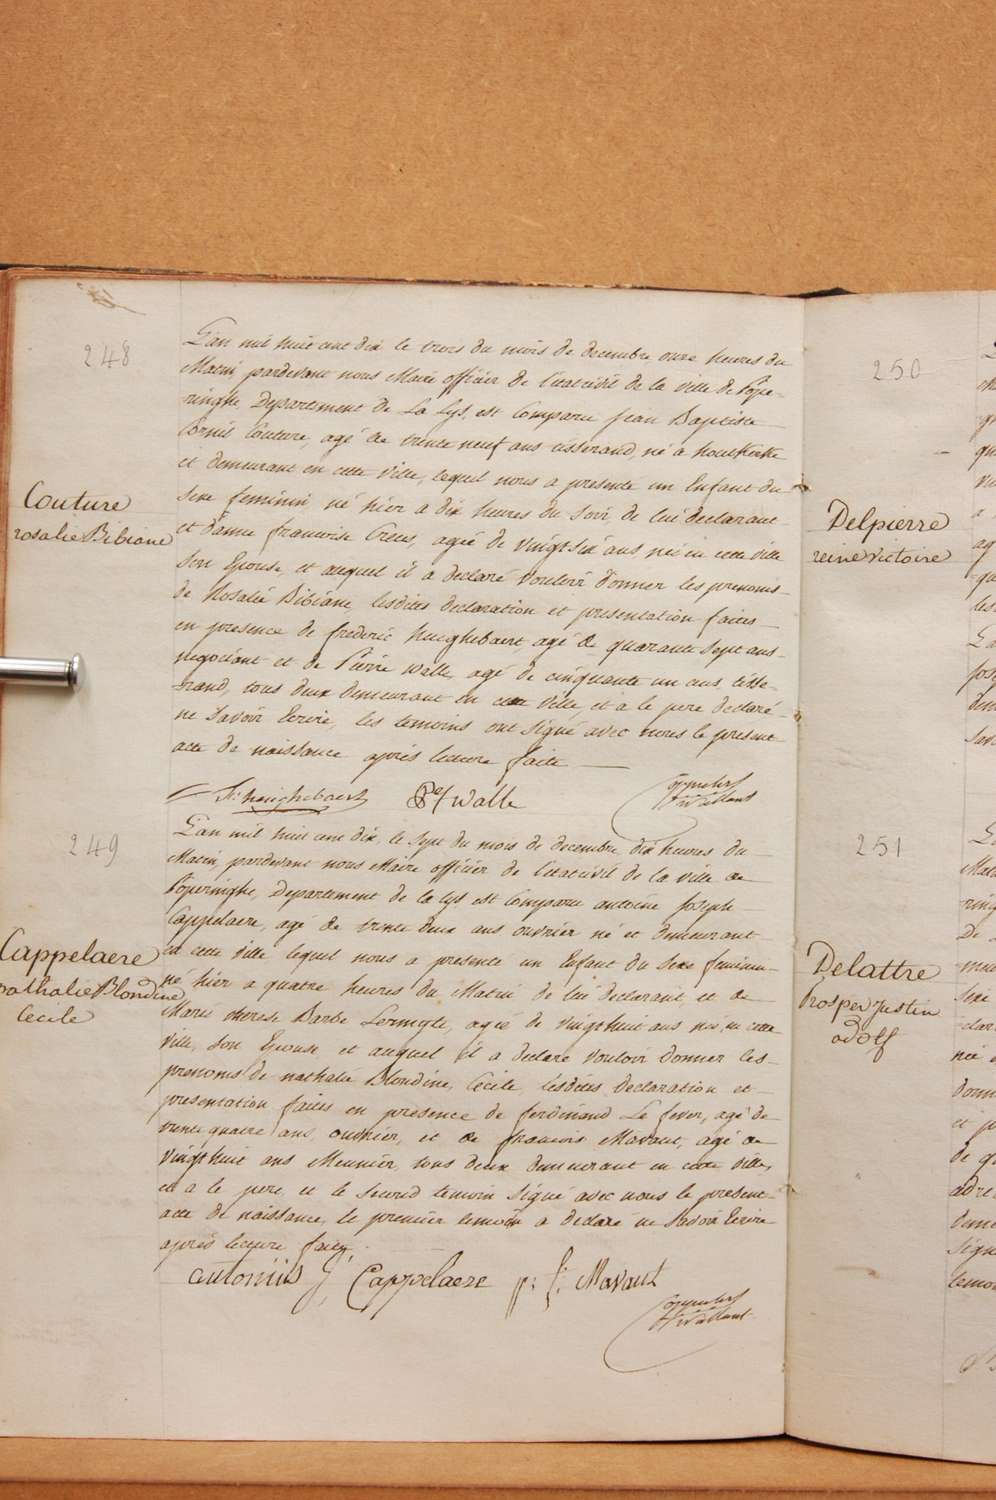 248
Couture
rosalie Bibiane
L'an mil huit cent dix le trois du mois de decembre onze heures du
Matin, pardevant nous Maire officier de l'état civil de la ville de Pope-
ringhe Departement de La Lys, est Comparu Jean Baptiste
Cornil Couture, agé de trente neuf ans tisserand, né à houtkerke
et demeurant en cette ville, lequel nous a presenté un Enfant du
Sexe feminin né hier à dix heures du Soir, de lui declarant
et d'anne francoise Creus, agée de vingt six ans née en cette ville
Son Epouse, et auquel il a declaré vouloir donner les prenoms
de Rosalie Bibiane, lesdites declaration et presentation faites
en presence de frederic hueghebaert agé de quarante sept ans
negociant et de Pierre Walle, agé de cinquante un ans, tisse-
rand, tous deux demeurant en cette ville, et à le pere declaré
ne Savoir Ecrire, les temoins ont signé avec nous le present
acte de naissance après lecture faite
P. Walle
249
Cappelaere
nathalie Blondine
Cecile
L'an mil huit cent dix, le sept du mois de decembre dix heures du
Matin, pardevant nous Maire officier de l'état civil de la ville de
Poperinghe, departement de la lys est Comparu antoine Joseph
Cappelaere, agé de trente deux ans ouvrier né et demeurant
en cette ville lequel nous a presenté un Enfant du Sexe feminin
né hier a quatre heures du Matin de lui declarant et de
Marie therese Barbe Lermyte, agée de vingt huit ans née en cette
ville, Son Epouse et auquel il a declaré vouloir donner les
prenoms de nathalie Blondine, Cecile, lesdites declaration et
presentation faites en presence de ferdinand Le fever, agé de
trente quatre ans, ouvrier, et de francois Mavaut, agé de
vingt huit ans Meunier, tous deux demeurant en cette ville,
et a le pere, et le Second temoin Signé avec nous le present
acte de naissance, le premier temoin a declaré ne Savoir Ecrire
après lecture faite
antoniis J. Cappelaere p: f: Mavaut
250
Delpierre
reine victoire
251
Delattre
prosper justin
adolf